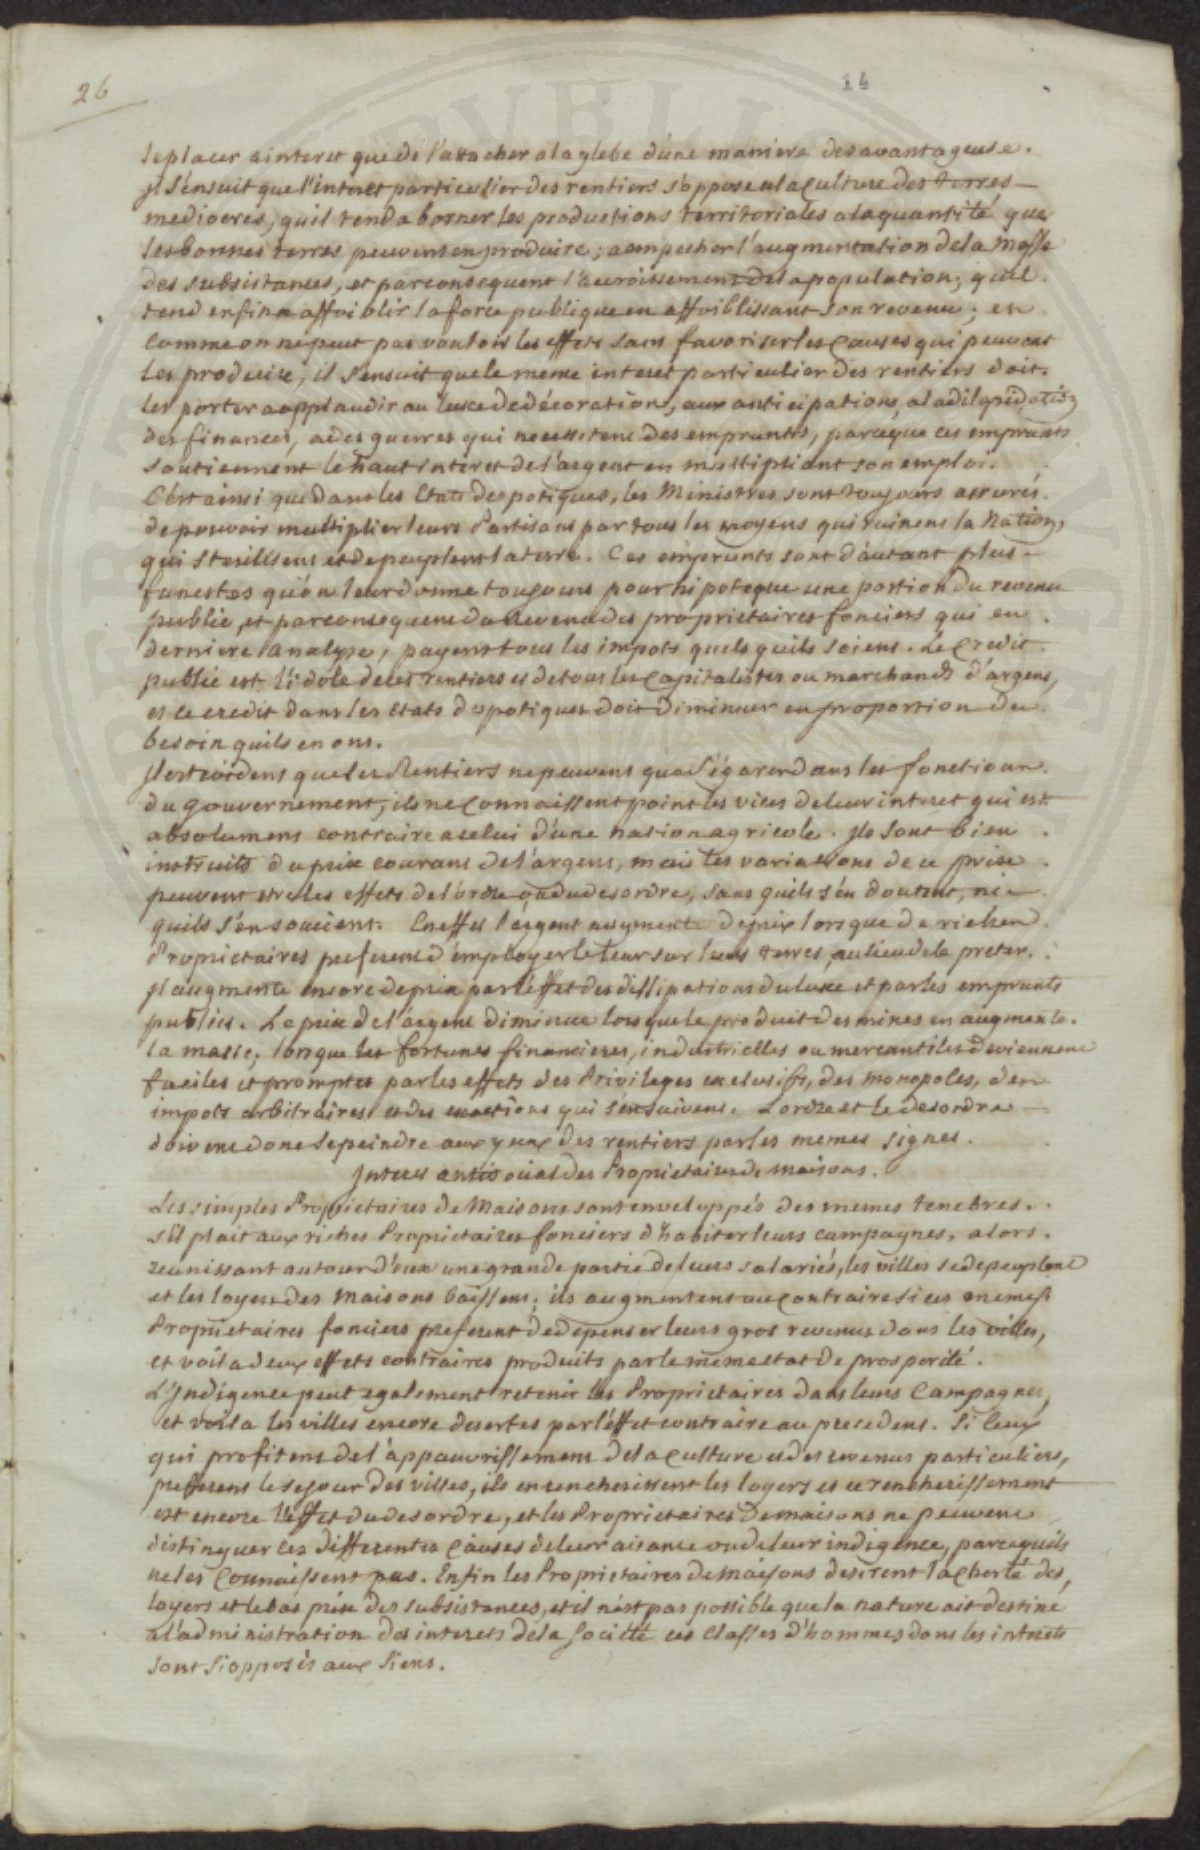 26
14
le placer a interet que de l'attacher a la glebe d'une maniere desavantageuse.
Jl s'ensuit que l'interet particulier des rentiers s'oppose a la culture des terres
mediocres, quil tend a borner les productions territoriales a la quantité que
les bonnes terres peuvent en produire; a empecher l'augmentation de la Masse
des subsistances, et par consequent l'accroissement de la population; quil
tend enfin a affoiblir la force publique en affoiblissant son revenu; en
comme on ne peut pas vouloir les effets sans favoriser les causes qui peuvent
les produire, il s'ensuit que le meme interet particulier des rentiers doit
les porter a applaudir au luxe de décoration, aux anticipations, a la dilapidation
des finances, a des guerres qui necessitent des emprunts, parceque ces emprunts
soutiennent le haut interet de l'argent en multipliant son emploi.
C'est ainsi que dans les Etats despotiques, les Ministres sont toujours assurés
de pouvoir multiplier leurs Partisans par tous les moyens qui ruinent la Nation,
qui sterilisent et depeuplent la terre. Ces emprunts sont d'autant plus
funestes qu'on leur donne toujours pour hipoteque une portion du revenu
public, et par consequent du Revenu des proprietaires fonciers qui en
derniere analyse, payent tous les impots quels quils soient. Le Credit
public est l'idole de ces rentiers et de tous les Capitalistes ou marchands d'argent,
et ce credit dans les Etats dspotiques doit diminuer en proportion du
besoin quils en ont.
Jl est évident que les Rentiers ne peuvent que s'égarer dans les fonctions
du gouvernement; ils ne connaissent point les vices de leur interet qui est
absolument contraire a celui d'une nation agricole. Jls sont bien
instruits du prix courant de l'argent, mais les variations de ce prix
peuvent etre les effets de l'ordre ou du desordre, sans quils s'en doutent, ni
quils s'en soucient. En effet l'argent augmente de prix lorsque de riches
Proprietaires preferent d'employer le leur sur leurs terres, au lieu de le preter.
Jl augmente encore de prix par l'effet des dissipations du luxe et par les emprunts
publics. Le prix de l'argent diminue lorsque le produit des mines en augmente
la masse; lorsque les fortunes financieres, industrielles ou mercantiles deviennent
faciles et promptes par les effets des Privileges exclusifs, des monopoles, des
impots arbitraires et des exactions qui s'ensuivent. L'ordre et le desordre
doivent donc se peindre aux yeux des rentiers par les memes signes.
Jnteret antisocial des Proprietaires de maisons.
Les simples Proprietaires de Maisons sont enveloppés des memes tenebres.
S'il plait aux riches Proprietaires fonciers d'habiter leurs campagnes, alors
reunissant autour d'eux une grande partie de leurs salariés, les villes se depeuplent
et les loyers des Maisons baissent; ils augmentent au contraire si ces memes
Proprietaires fonciers preferent de depenser leurs gros revenus dans les villes,
et voila deux effets contraires produits par le meme etat de prosperité.
L'Jndigence peut egalement retenir les Proprietaires dans leurs Campagnes,
et voila les villes encore desertes par l'effet contraire au precedent. Si ceux
qui profitent de l'appauvrissement de la culture et des revenus particuliers,
preferent le sejour des villes, ils en rencherissent les loyers et ce rencherissement
est encore l'effet du desordre, et les Proprietaires de maisons ne peuvent
distinguer ces differentes causes de leur aisance ou de leur indigence, parcequ'ils
ne les connaissent pas. Enfin les Proprietaires de maisons desirent la cherté des
loyers et le bas prix des subsistances, et il n'est pas possible que la nature ait destiné
a l'administration des interets de la Société ces classes d'hommes dont les interets
sont si opposés aux siens.